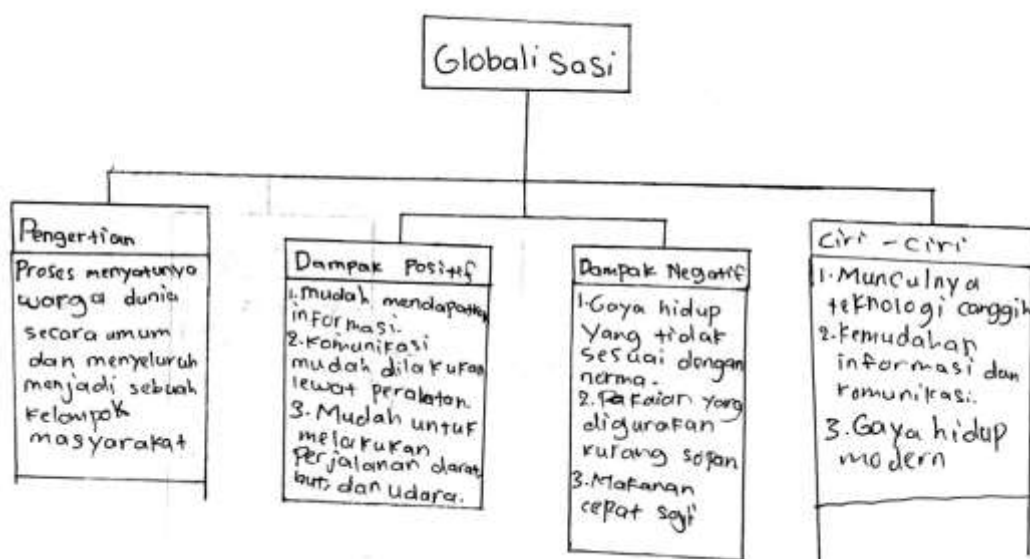 Globalisasi
Pengertian
Proses menyatunya
warga dunia
secara umum
dan menyeluruh
menjadi sebuah
kelompok
masyarakat
Dampak Positif
1. mudah mendapatkan
informasi.
2. komunikasi
mudah dilakukan
lewat peralatan.
3. Mudah untuk
melakukan
perjalanan darat,
laut, dan udara.
Dampak Negatif
1. Gaya hidup
yang tidak
sesuai dengan
norma.
2. Pakaian yang
digunakan
kurang sopan
3. Makanan
cepat saji
Ciri - ciri
1. Munculnya
teknologi canggih
2. Kemudahan
informasi dan
komunikasi.
3. Gaya hidup
modern